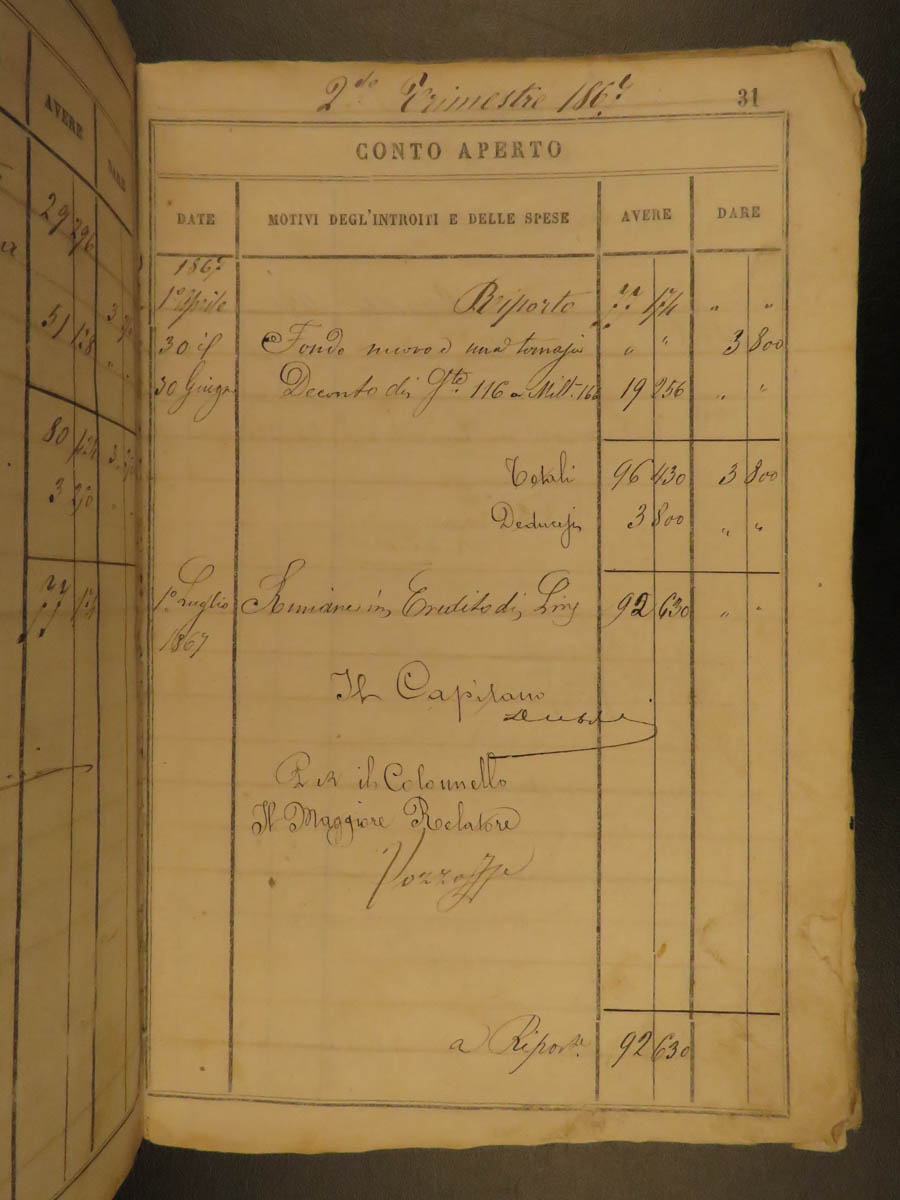 AVERE DARE
29 296
51 128
80 424
3 250
77 174
2do Trimestre 1867
31
CONTO APERTO
DATE MOTIVI DEGL'INTROITI E DELLE SPESE AVERE DARE
1867
1º Aprile Riporto 77 174 " "
30 id Fondo nuovo a una tomaja " " 3 800
30 Giugno Deconto di Gte 116 a Mill. 166 19 256 " "
Totali 96 430 3 800
Deducesi 3 800 " "
1º Luglio Rimane in Credito di Lire 92 630 " "
1867
Il Capitano
Per il Colonnello
Il Maggiore Relatore
a Riporte 92 630